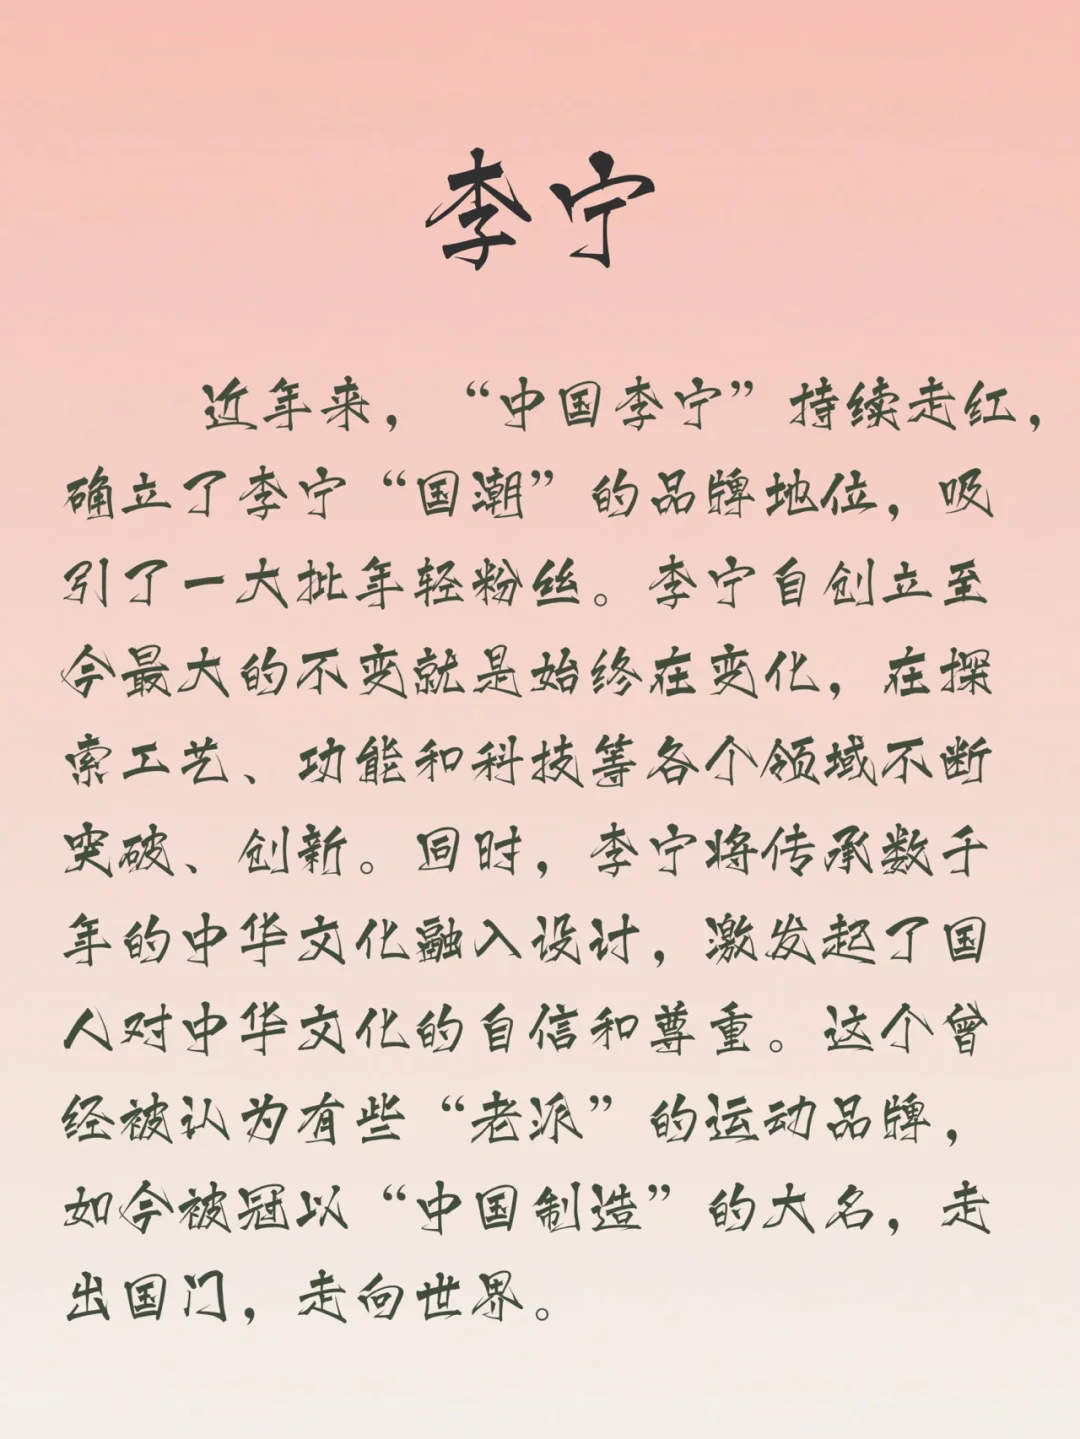 李宁
近年来，“中国李宁”持续走红，
确立了李宁“国潮”的品牌地位，吸
引了一大批年轻粉丝。李宁自创立至
今最大的不变就是始终在变化，在探
索工艺、功能和科技等各个领域不断
突破、创新。同时，李宁将传承数千
年的中华文化融入设计，激发起了国
人对中华文化的自信和尊重。这个曾
经被认为有些“老派”的运动品牌，
如今被冠以“中国制造”的大名，走
出国门，走向世界。